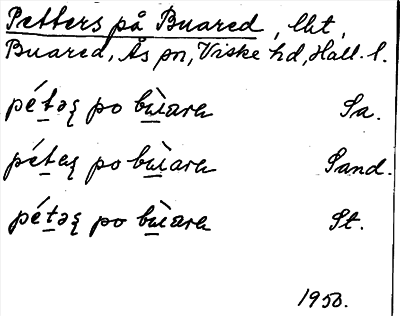 Petters på Buared, lht,
Buared, Ås sn, Viske hd, Hall. l.
pétəȿ po bùarə Sa.
pétəȿ po bùarə Sand.
pétəȿ po bùarə St.
1950.